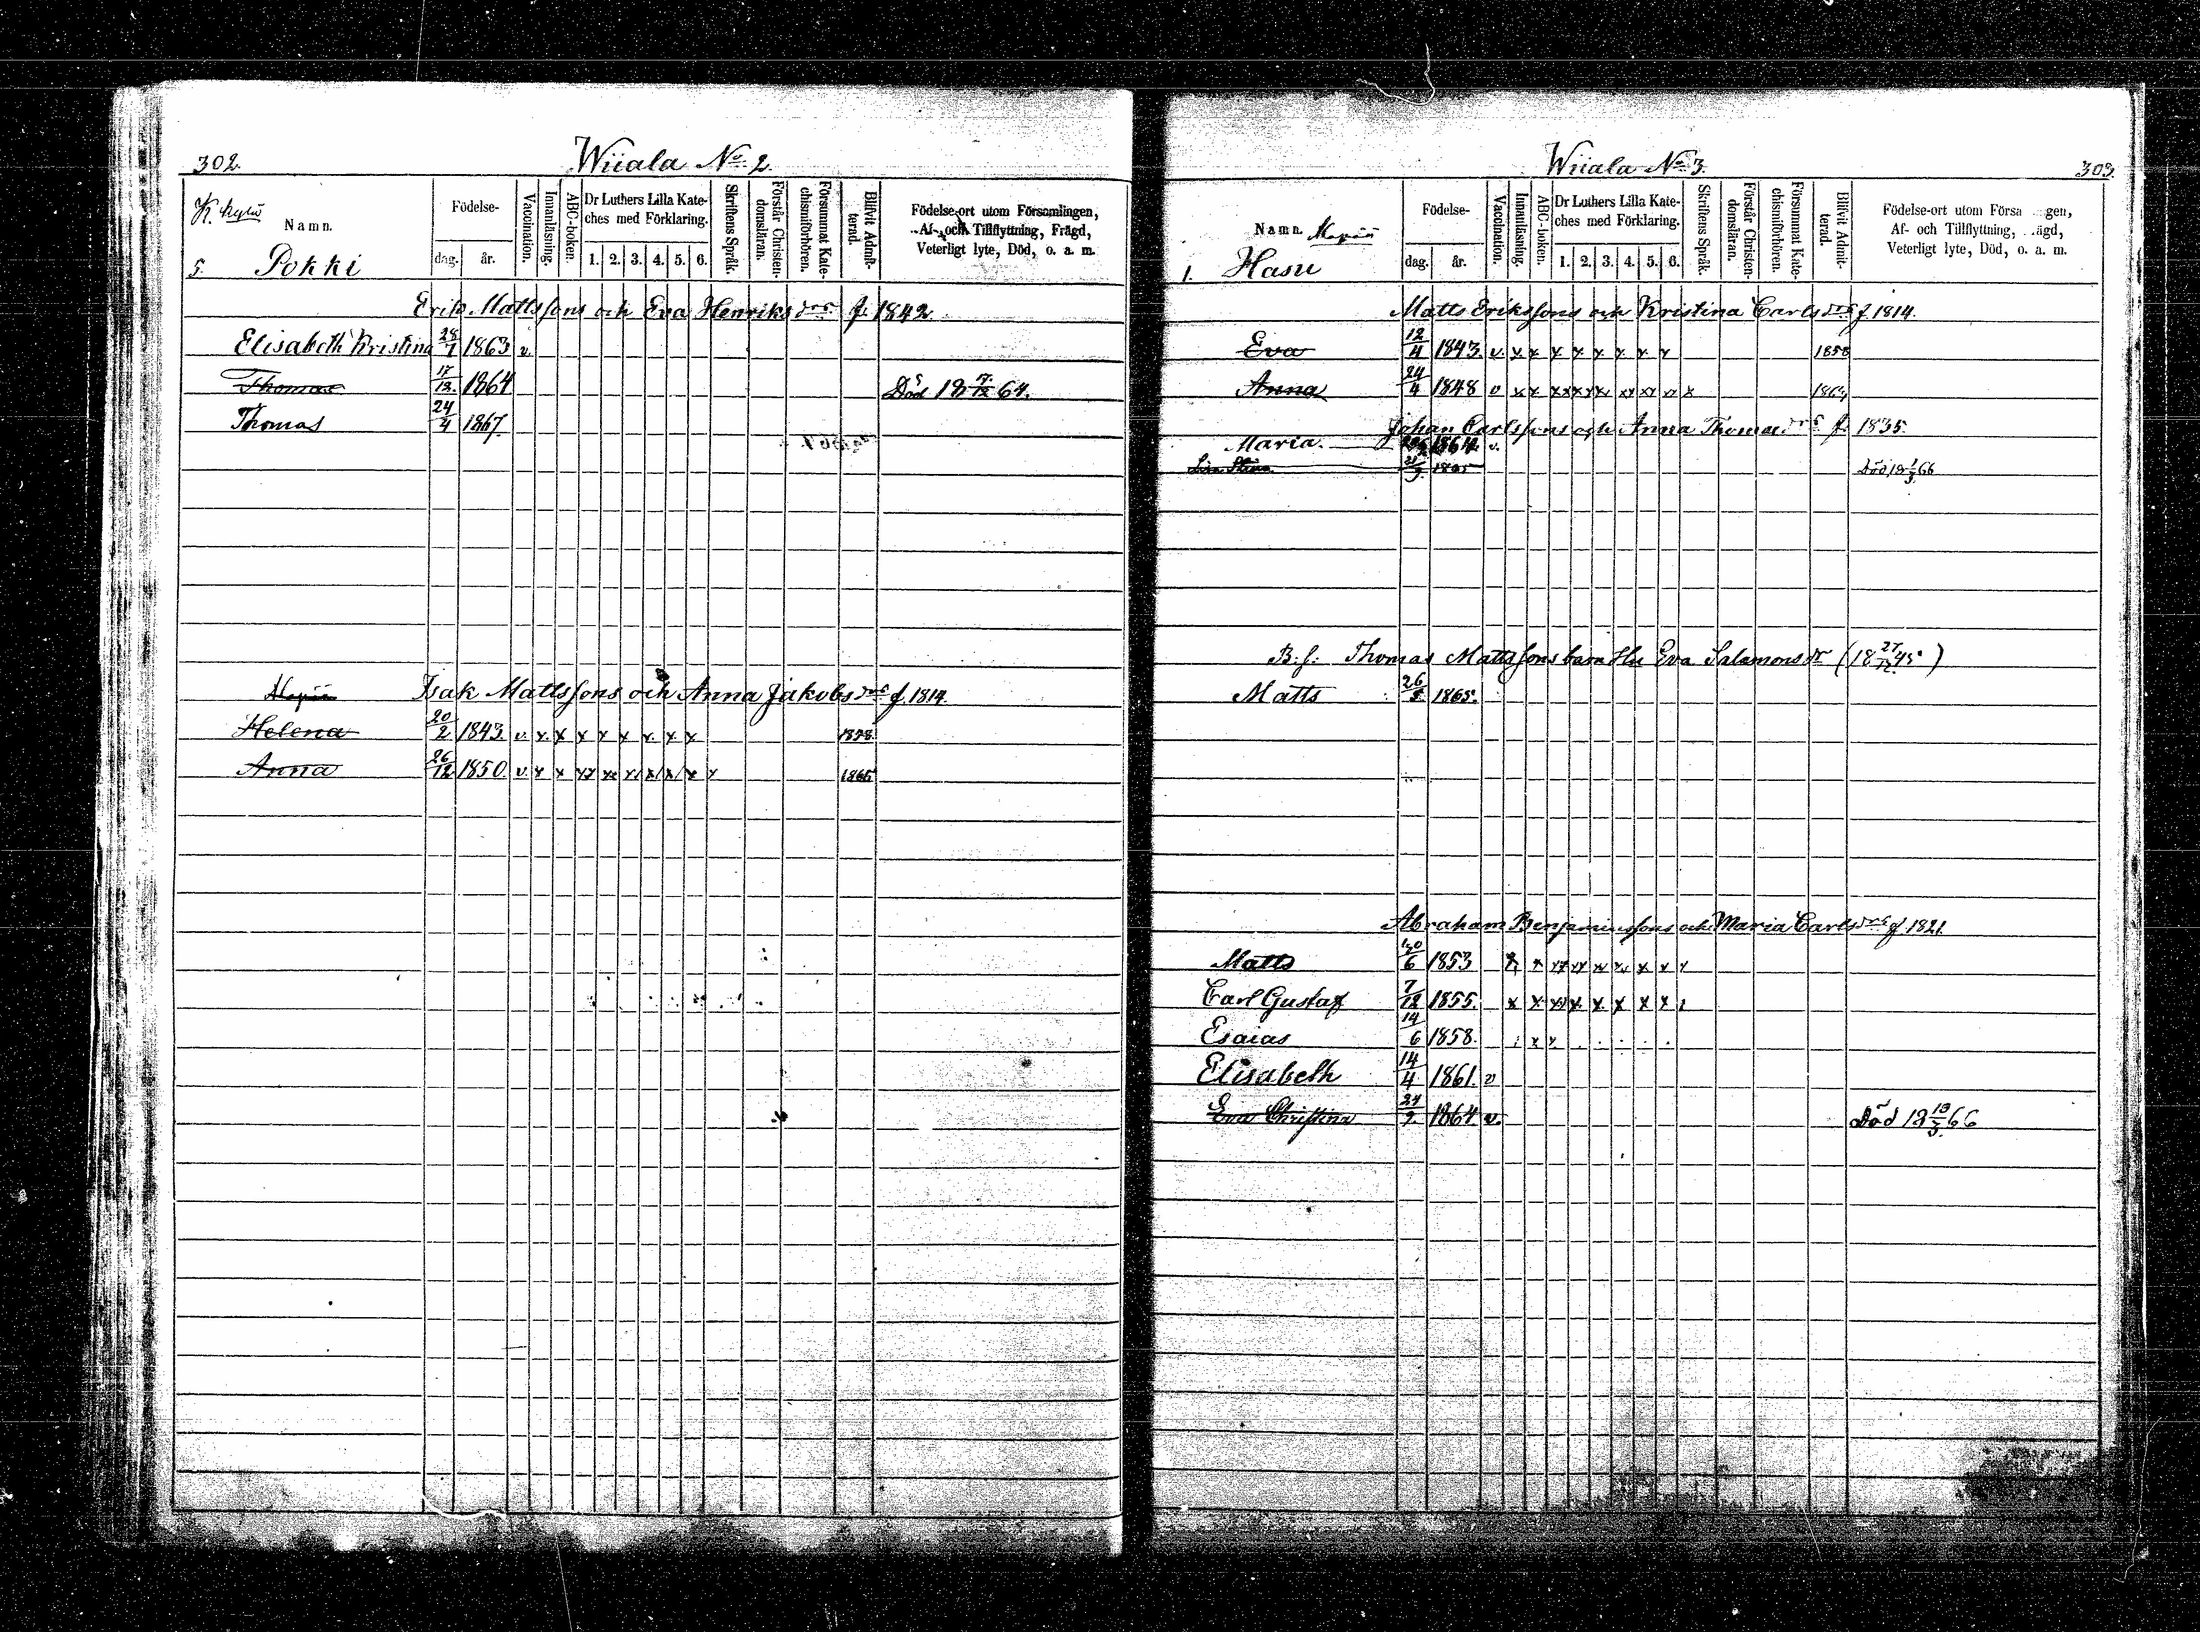 302.
Wiiala No. 2.
K. kylä
Namn.
Födelse-
dag.
år.
Vaccination.
Innanläsning.
ABC-boken.
Dr Luthers Lilla Kate-
ches med Förklaring.
1. 2. 3. 4. 5. 6.
Skriftens Språk.
Förstår Christen-
domsläran.
Försummat Kate-
chismiförhören.
Blifvit Admit-
terad.
Födelse-ort utom Församlingen,
Af- och Tillflyttning, Frägd,
Veterligt lyte, Död, o. a. m.
5. Pokki
Erik Mattssons och Eva Henriksdrs f. 1842.
Elisabeth Kristina 28/7 1863 v.
Thomas 17/12. 1864 Död 18 17/12 64.
Thomas 24/4 1867.
Isak Mattssons och Anna Jakobsdrs f. 1814.
Helena 20/2 1843. v. x. x x x x x. x x 1858.
Anna 26/12 1850. v. x x xx xx x x x x x 1865
303.
Wiiala No 3.
Namn.
Födelse-
dag.
år.
Vaccination.
Innanläsning.
ABC-boken.
Dr Luthers Lilla Kate-
ches med Förklaring.
1. 2. 3. 4. 5. 6.
Skriftens Språk.
Förstår Christen-
domsläran.
Försummat Kate-
chismiförhören.
Blifvit Admit-
terad.
Födelse-ort utom Församlingen,
Af- och Tillflyttning, Frägd,
Veterligt lyte, Död, o. a. m.
1. Hasu
Matts Erikssons och Kristina Carlsdrs f 1814.
Eva 12/4 1843. v. x. x x x x x x x 1858
Anna 24/4 1848 v x x xx xx x xx xx xx x 1864
Johan Carlssons och Anna Thomasdrs f. 1835.
Maria. 1864. v.
Lisa Stina 1865 Död 18 1/3 66
B. f. Thomas Mattssons barn Hu Eva Salamonsdr (18 27/12 45)
Matts 26/5. 1865.
Abraham Benjaminssons och Maria Carlsdrs f 1821.
Matts 20/6 1853 x x xx xx x x x x x
Carl Gustaf 7/12 1855. x x xx x. x. x x x
Esaias 14/6 1858. x x
Elisabeth 14/4 1861. v
Eva Christina 24/9. 1864. v. Död 18 13/3. 66